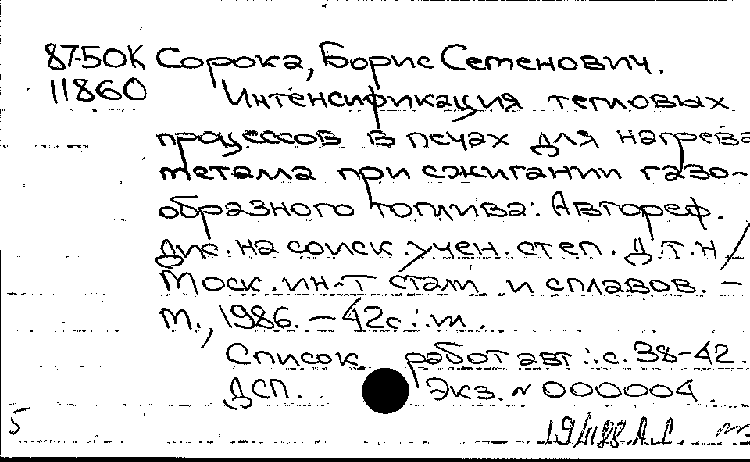 87-50К Сорока, Борис Семенович.
11860 Интенсификация тепловых
процессов в печах для нагрева
металла при сжигании газо-
образного топлива: Автореф.
дис. на соиск. учен. степ. д.т.н /
Моск. ин-т стали и сплавов. –
М., 1986. – 42с.: ил.
Список работ авт.: с. 38-42.
ДСП. Экз. № 000004.
5